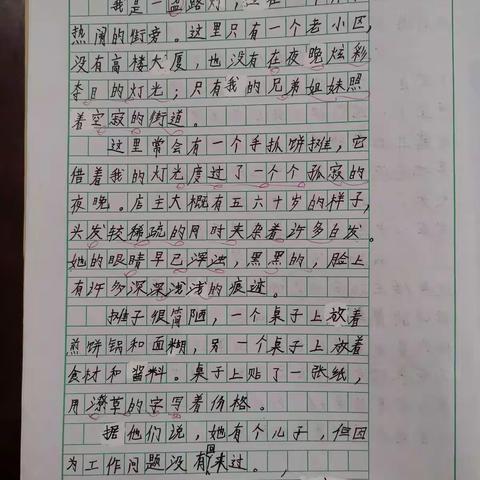 我是一盏路灯，
热闹的街旁。这里只有一个老小区，
没有高楼大厦，也没有在夜晚炫彩
夺目的灯光；只有我的兄弟姐妹照
着空寂的街道。
这里常会有一个手抓饼摊，它
借着我的灯光度过了一个个孤寂的
夜晚。店主大概有五六十岁的样子，
头发较稀疏的同时夹杂着许多白发。
她的眼睛早已浑浊，黑黑的，脸上
有许多深深浅浅的痕迹。
摊子很简陋，一个桌子上放着
煎饼锅和面糊，另一个桌子上放着
食材和酱料。桌子上贴了一张纸，
用潦草的字写着价格。
据他们说，她有个儿子，但因
为工作问题没有回来过。